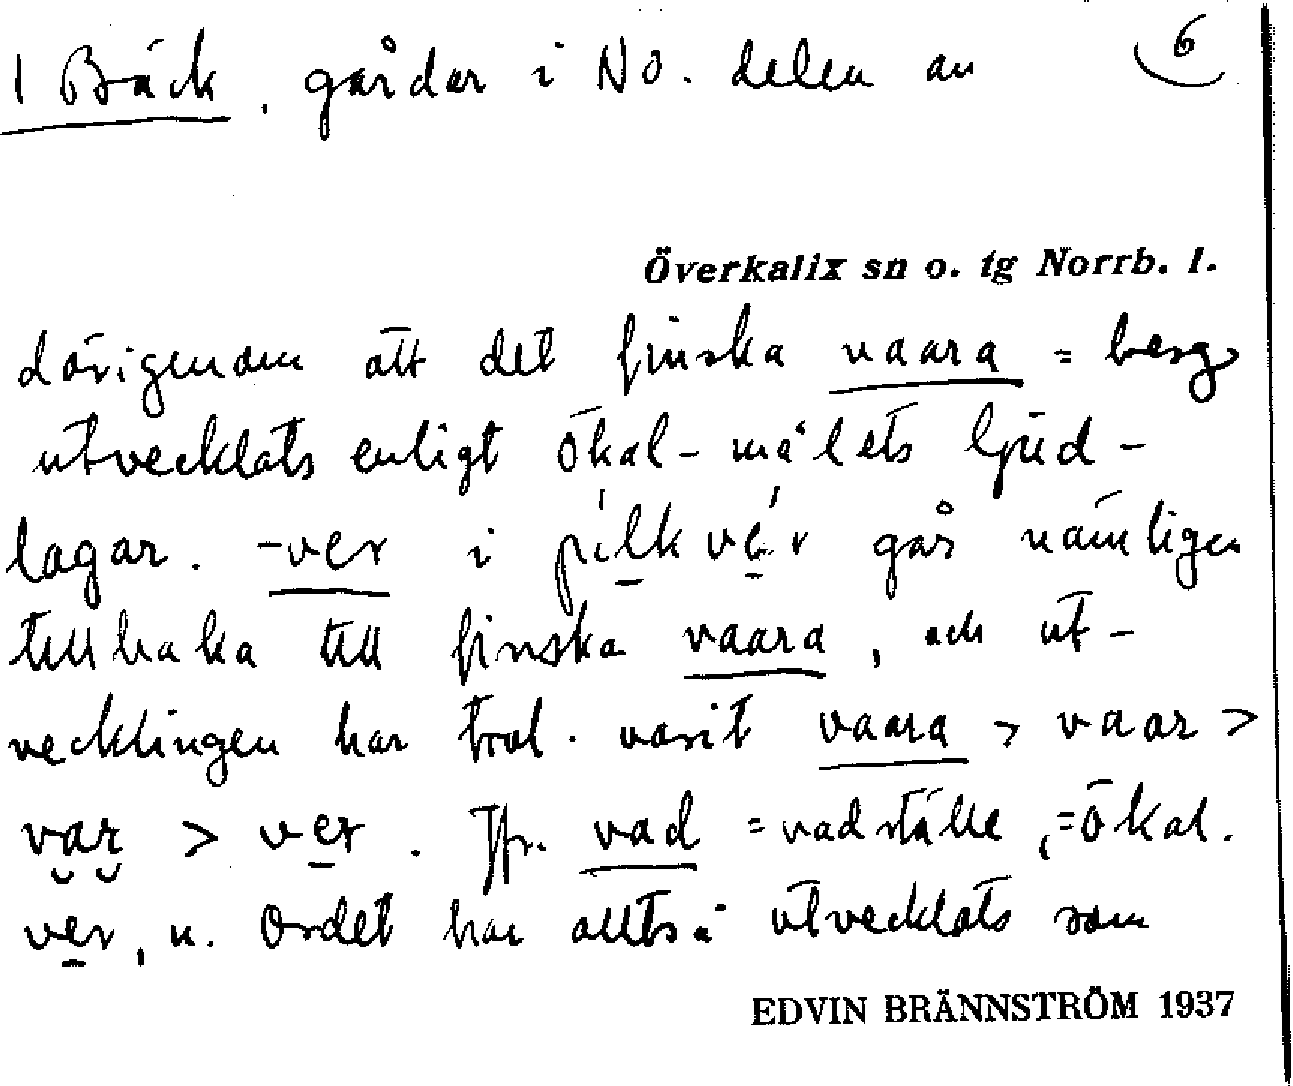 1 Bäck, gårdar i NO. delen av 6
Överkalix sn o. tg Norrb. l.
därigenom att det finska vaara = berg
utvecklats enligt ökal-målets ljud-
lagar. -ver i pilkver går nämligen
tillbaka till finska vaara, och ut-
vecklingen har trol. varit vaara > vaar >
var > ver. Jfr. vad = vadställe, = ökal.
ver, n. Ordet har alltså utvecklats som
EDVIN BRÄNNSTRÖM 1937